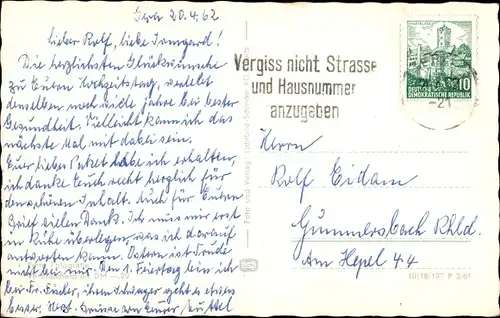 Gera 20.4.62
Lieber Rolf, liebe Irmgard!
Die herzlichsten Glückwünsche
zu Eurem Hochzeitstag, verlebt
denselben noch viele Jahre bei bester
Gesundheit. Vielleicht kann ich das
nächste Mal mit dabei sein.
Euer liebes Paket habe ich erhalten,
ich danke Euch recht herzlich für
den schönen Inhalt. Auch für Euren
Brief vielen Dank. Ich muss mir erst
in Ruhe überlegen, was ich darauf
antworten kann. Ostern ist Trude
nicht bei mir. Den 1. Feiertag bin ich
bei Fr. Fischer, ihrem Schwager geht es etwas
besser. Herzl. Grüsse von Eurer Muttel
Vergiss nicht Strasse
und Hausnummer
anzugeben
-21
10
DEUTSCHE
DEMOKRATISCHE REPUBLIK
Foto und Verlag
Herrn
Rolf Eidam
Gummersbach Rhld.
Am Hepel 44
10/18/197 P 3/61